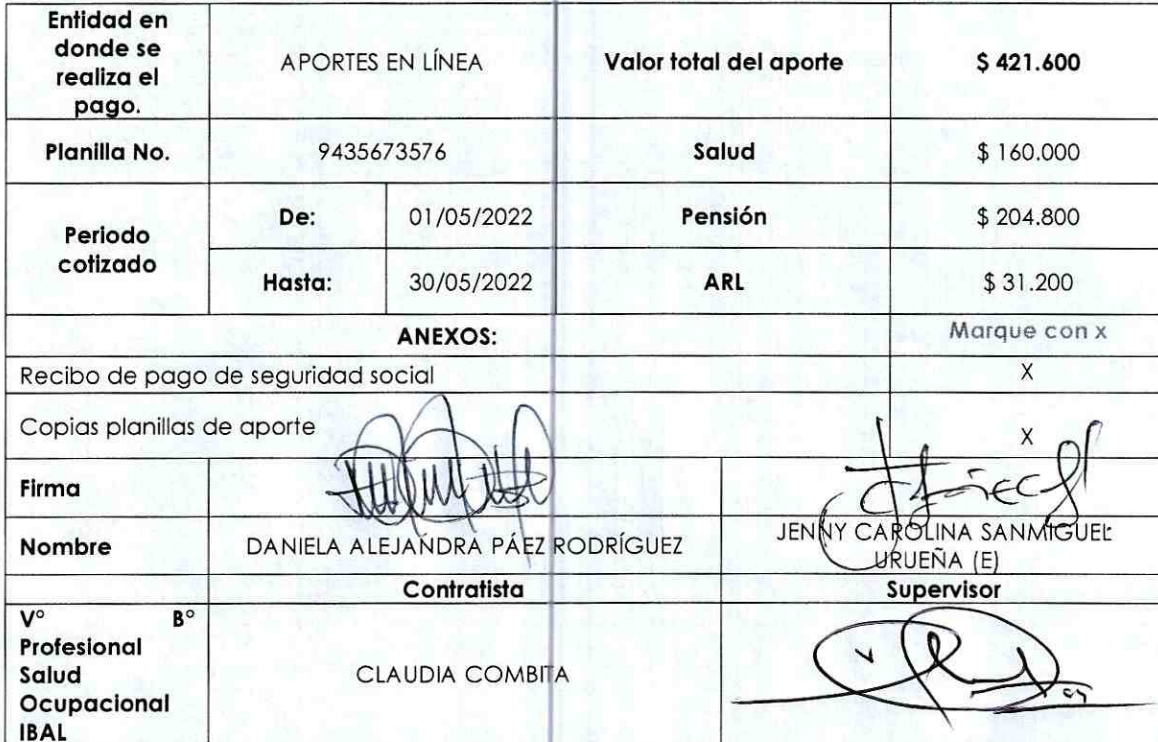 Entidad en
donde se
realiza el
pago.
APORTES EN LÍNEA
Valor total del aporte
$ 421.600
Planilla No.
9435673576
Salud
$ 160.000
Periodo
cotizado
De:
01/05/2022
Pensión
$ 204.800
Hasta:
30/05/2022
ARL
$ 31.200
ANEXOS:
Marque con x
Recibo de pago de seguridad social
X
Copias planillas de aporte
X
Firma
Nombre
DANIELA ALEJANDRA PÁEZ RODRÍGUEZ
JENNY CAROLINA SANMIGUEL
URUEÑA (E)
Contratista
Supervisor
V° B°
Profesional
Salud
Ocupacional
IBAL
CLAUDIA COMBITA